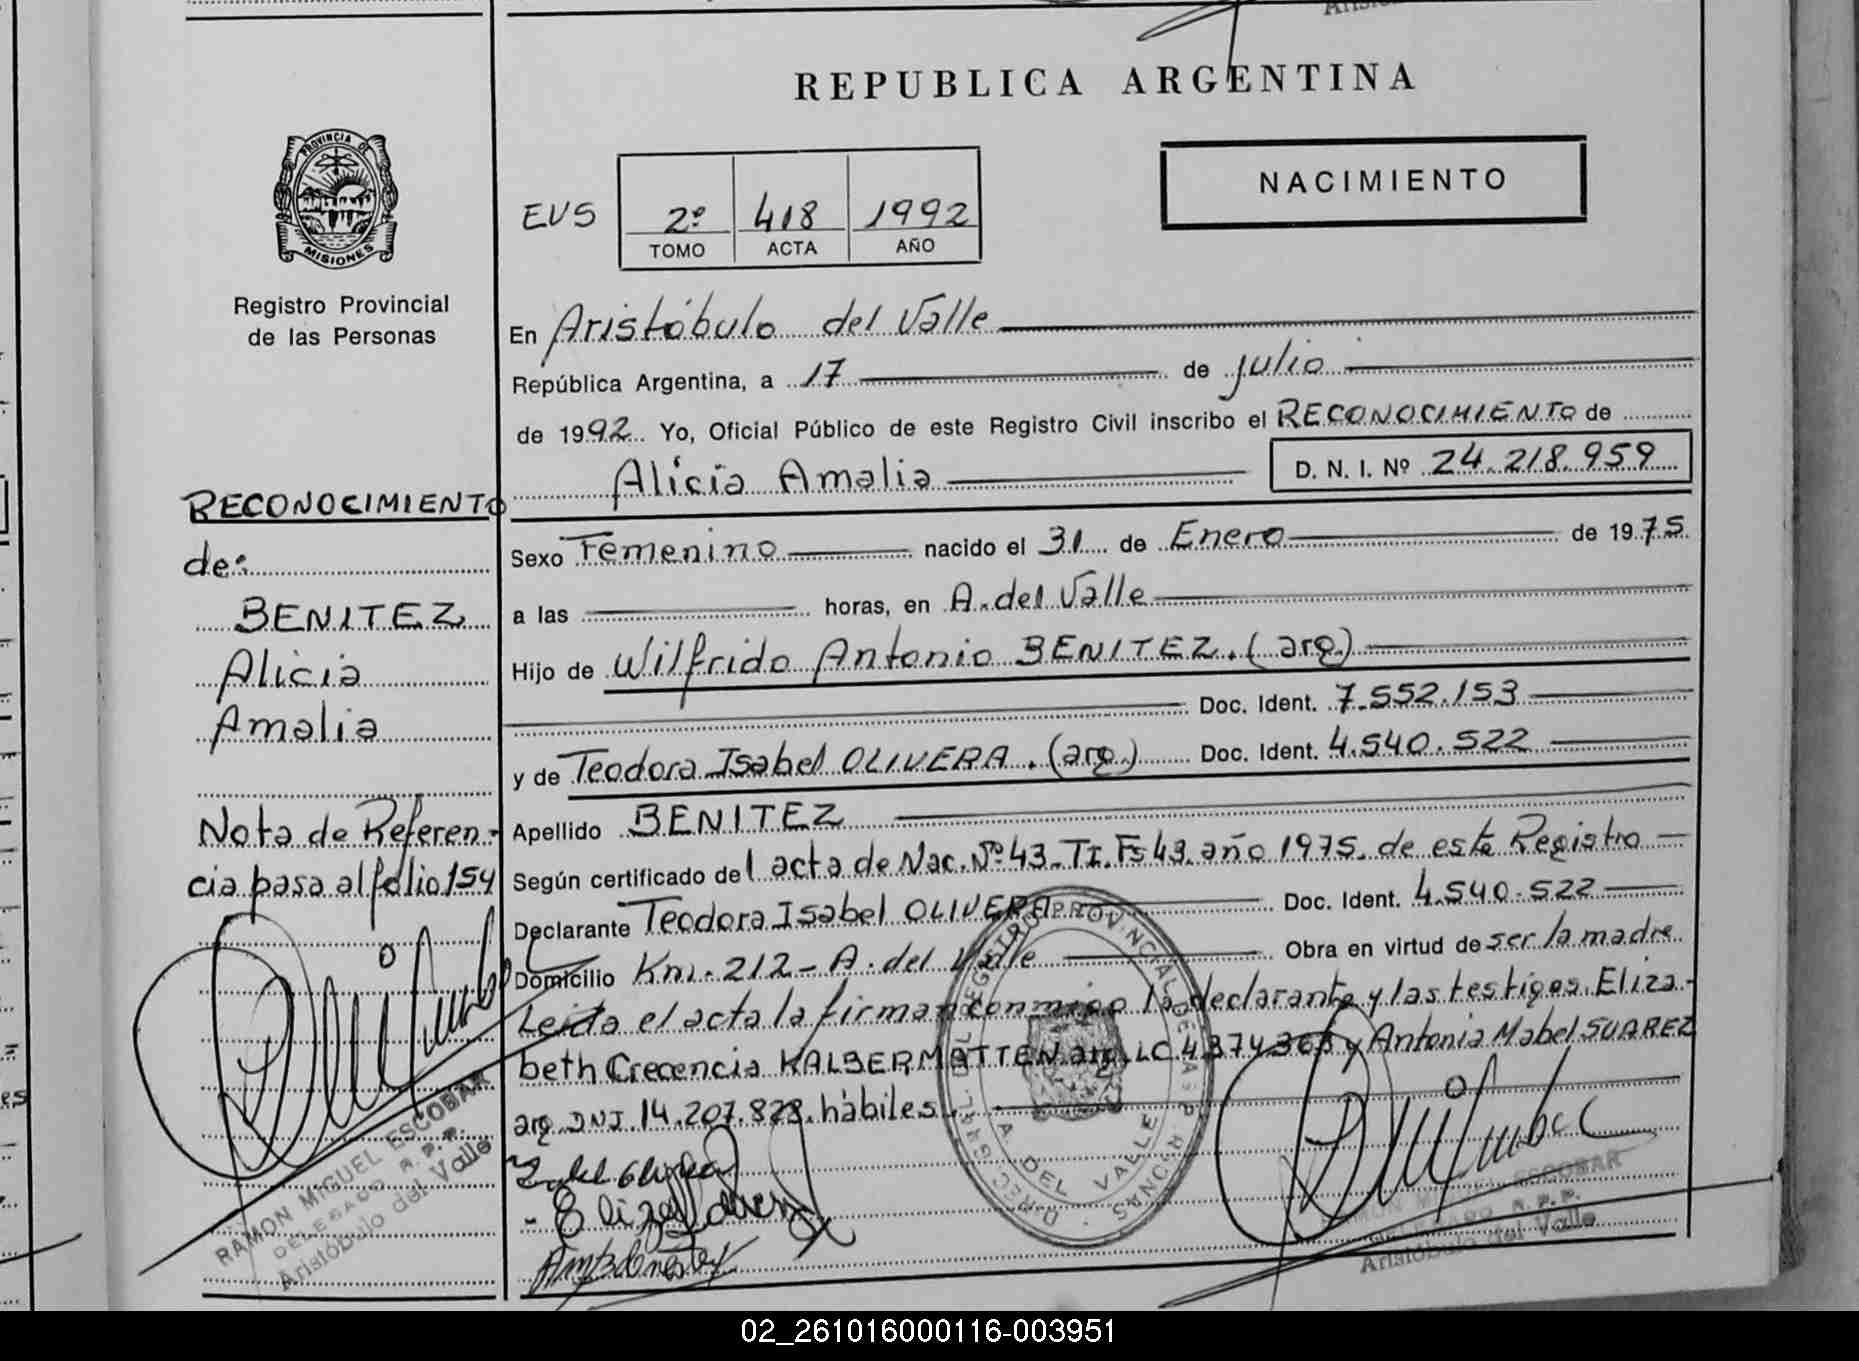 REPUBLICA ARGENTINA
PROVINCIA DE
MISIONES
Registro Provincial
de las Personas
NACIMIENTO
EVS
2º 418 1992
TOMO ACTA AÑO
En Aristóbulo del Valle
República Argentina, a 17 de julio
de 1992. Yo, Oficial Público de este Registro Civil inscribo el RECONOCIMIENTO de
Alicia Amalia D. N. I. Nº 24.218.959
Sexo Femenino nacido el 31 de Enero de 1975.
a las horas, en A. del Valle
Hijo de Wilfrido Antonio BENITEZ. (arg.)
Doc. Ident. 7.552.153
y de Teodora Isabel OLIVERA. (arg.) Doc. Ident. 4.540.522
Apellido BENITEZ
Según certificado del acta de Nac. Nº 43. TI. Fs 43. año 1975. de este Registro
Declarante Teodora Isabel OLIVERA Doc. Ident. 4.540.522
Domicilio Km. 212 - A. del Valle Obra en virtud de ser la madre
Leída el acta la firman conmigo la declarante y las testigas. Eliza-
beth Crecencia KALBERMATTEN arg. LC. y Antonia Mabel SUAREZ
arg. DNI. 14.207.828. hábiles.
RECONOCIMIENTO
de:
BENITEZ
Alicia
Amalia
Nota de Referen-
cia pasa al folio 154
RAMON MIGUEL ESCOBAR
DELEGADO R. P. P.
Aristóbulo del Valle
REGISTRO PROVINCIAL DE LAS PERSONAS
A. DEL VALLE
RAMON MIGUEL ESCOBAR
DELEGADO R. P. P.
Aristóbulo del Valle
02_261016000116-003951